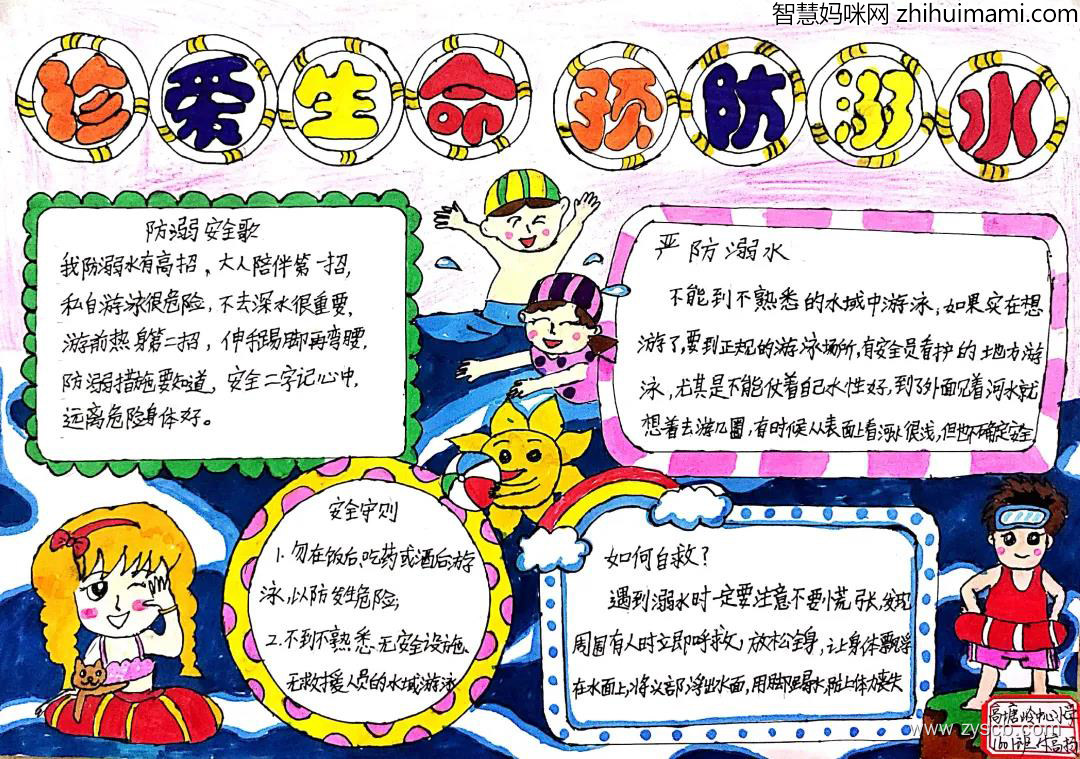 智慧妈咪网 zhihuimami.com
珍爱生命 预防溺水
防溺安全歌
我防溺水有高招，大人陪伴第一招，
私自游泳很危险，不去深水很重要，
游前热身第二招，伸手踢脚再弯腰，
防溺措施要知道，安全二字记心中，
远离危险身体好。
严防溺水
不能到不熟悉的水域中游泳，如果实在想
游了，要到正规的游泳场所，有安全员看护的地方游
泳，尤其是不能仗着自己水性好，到了外面见着河水就
想着去游几圈，有时候从表面上看河水很浅，但也不确定安全
安全守则
1.勿在饭后、吃药或酒后游
泳，以防发生危险；
2.不到不熟悉、无安全设施、
无救援人员的水域游泳
如何自救？
遇到溺水时一定要注意不要慌张，发现
周围有人时立即呼救，放松全身，让身体飘浮
在水面上，将头部浮出水面，用脚踢水，防止体力丧失
高塘岭中心小学
1601班
www.zysc6.com